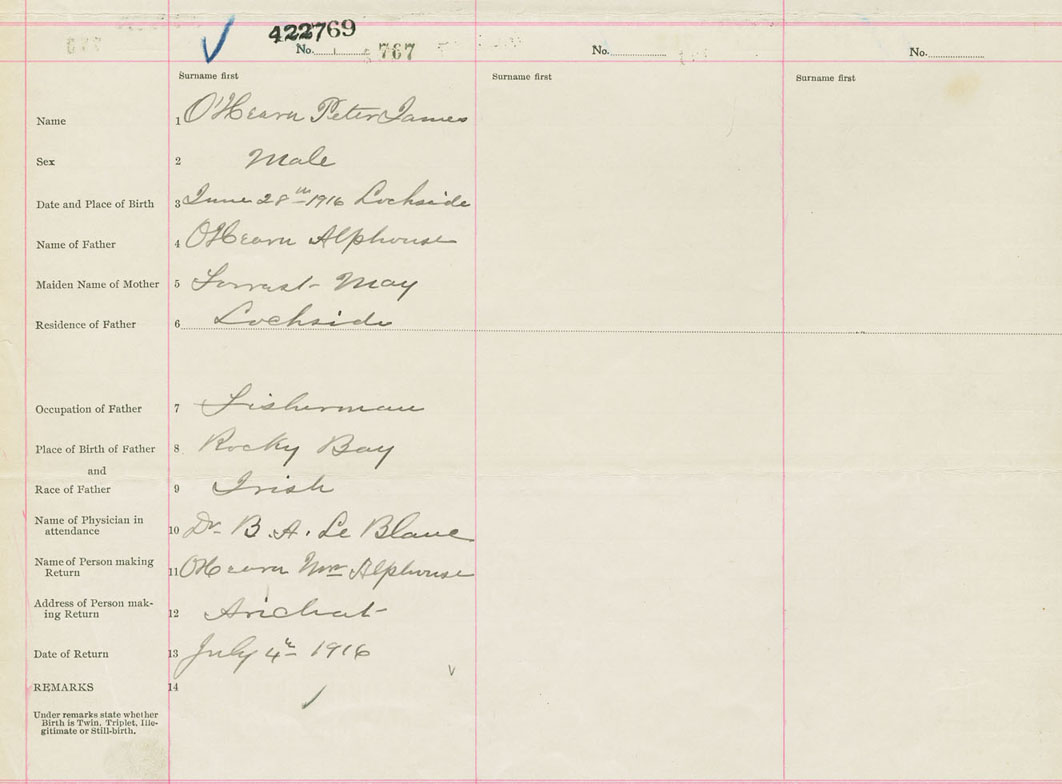 422769
No. 767 No. No.
Surname first Surname first Surname first
Name 1 O'Hearn Peter James
Sex 2 Male
Date and Place of Birth 3 June 28th 1916 Lochside
Name of Father 4 O'Hearn Alphonse
Maiden Name of Mother 5 Forrest May
Residence of Father 6 Lochside
Occupation of Father 7 Fisherman
Place of Birth of Father 8 Rocky Bay
and
Race of Father 9 Irish
Name of Physician in
attendance 10 Dr. B. A. Le Blanc
Name of Person making
Return 11 O'Hearn Mrs Alphonse
Address of Person mak-
ing Return 12 Arichat
Date of Return 13 July 4th 1916
REMARKS 14
Under remarks state whether
Birth is Twin, Triplet, Ille-
gitimate or Still-birth.